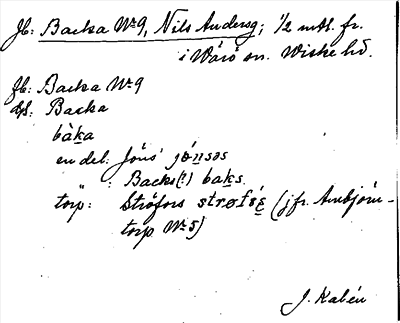 Jb: Backa No 9, Nils Andersg; 1/2 mtl. fr.
i Värö sn. Wiske hd.
fb: Backa No 9
df: Backa
bàka
en del: Jöns' jønsəs
" : Backs(!) baks
torp: Ströfors strøfsę (jfr. Arnbjörn-
torp No 5)
J. Kalén